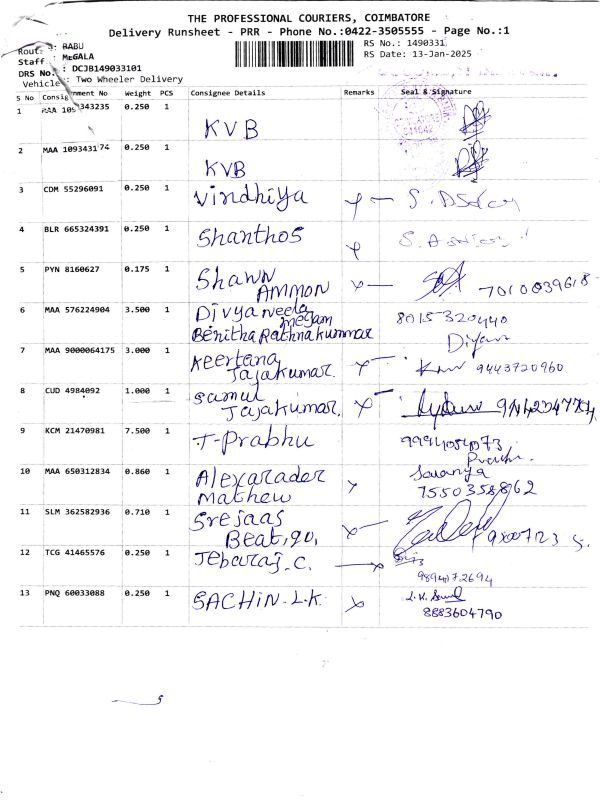 THE PROFESSIONAL COURIERS, COIMBATORE
Delivery Runsheet - PRR - Phone No.:0422-3505555 - Page No.:1
RS No.: 1490331
RS Date: 13-Jan-2025
: BABU
Staff : MeGALA
DRS No. : DCJB149033101
Vehicle : Two Wheeler Delivery
S No Consignment No Weight PCS Consignee Details Remarks Seal & Signature
1 MAA 109343235 0.250 1 KVB
2 MAA 109343174 0.250 1 KVB
3 CDM 55296091 0.250 1 Vindhiya
4 BLR 665324391 0.250 1 Shanthos
5 PYN 8160627 0.175 1 Shawn
AMMON 7010039618
6 MAA 576224904 3.500 1 Divya neela
megam 8015320440
Benitha Rathnakummar Divya
7 MAA 9000064175 3.000 1 Keertana
Jajakumar. 9443720960
8 CUD 4984092 1.000 1 Samul
Jajakumar.
9 KCM 21470981 7.500 1 T-Prabhu
10 MAA 650312834 0.860 1 Alexarader Saranya
Mathew 7550358862
11 SLM 362582936 0.710 1 Srejaas
Beat,
12 TCG 41465576 0.250 1 Jebaraj.C.
9894072694
13 PNQ 60033088 0.250 1 SACHIN.L.K
8883604790